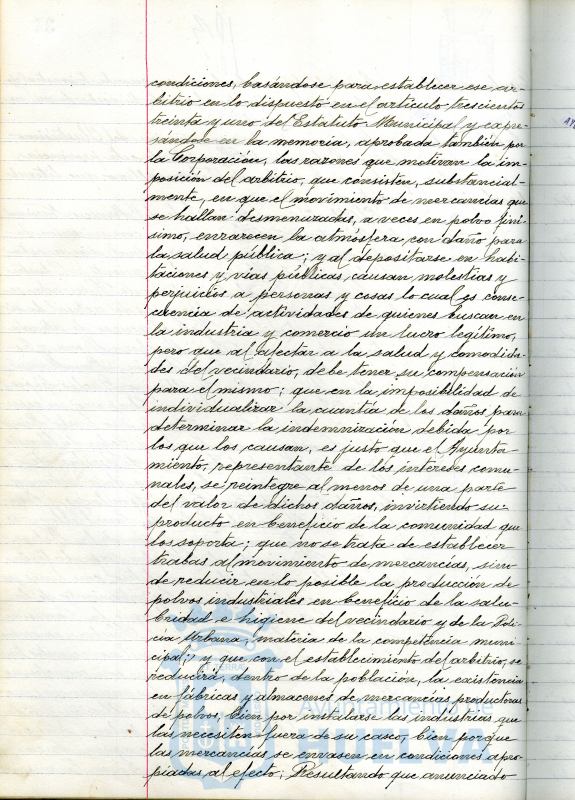 condiciones, basándose para establecer ese ar-
bitrio en lo dispuesto en el artículo trescientos
treinta y uno del Estatuto Municipal y expre-
sándose en la memoria, aprobada también por
la Corporación, las razones que motivan la im-
posición del arbitrio, que consisten, substancial-
mente, en que el movimiento de mercancías que
se hallan desmenuzadas, a veces en polvo finí-
simo, enrarecen la atmósfera, con daño para
la salud pública; y al depositarse en habi-
taciones y vías públicas, causan molestias y
perjuicios a personas y cosas lo cual es conse-
cuencia de actividades de quienes buscan en
la industria y comercio un lucro legítimo,
pero que al afectar a la salud y comodida-
des del vecindario, debe tener su compensación
para el mismo; que en la imposibilidad de
individualizar la cuantía de los daños para
determinar la indemnización debida por
los que los causan, es justo que el Ayunta
miento, representante de los intereses comu-
nales, se reintegre al menos de una parte
del valor de dichos daños, invirtiendo su
producto en beneficio de la comunidad que
los soporta; que no se trata de establecer
trabas al movimiento de mercancías, sino
de reducir en lo posible la producción de
polvos industriales en beneficio de la salu-
bridad e higiene del vecindario y de la Poli-
cía Urbana materia de la competencia muni
cipal; y que con el establecimiento del arbitrio, se
reducirá, dentro de la población, la existencia
en fábricas y almacenes de mercancías productoras
de polvos, bien por instalarse las industrias que
las necesiten fuera de su casco, bien porque
las mercancías se envasen en condiciones apro-
piadas al efecto; Resultando que anunciado
Ayuntamiento de
HUELVA